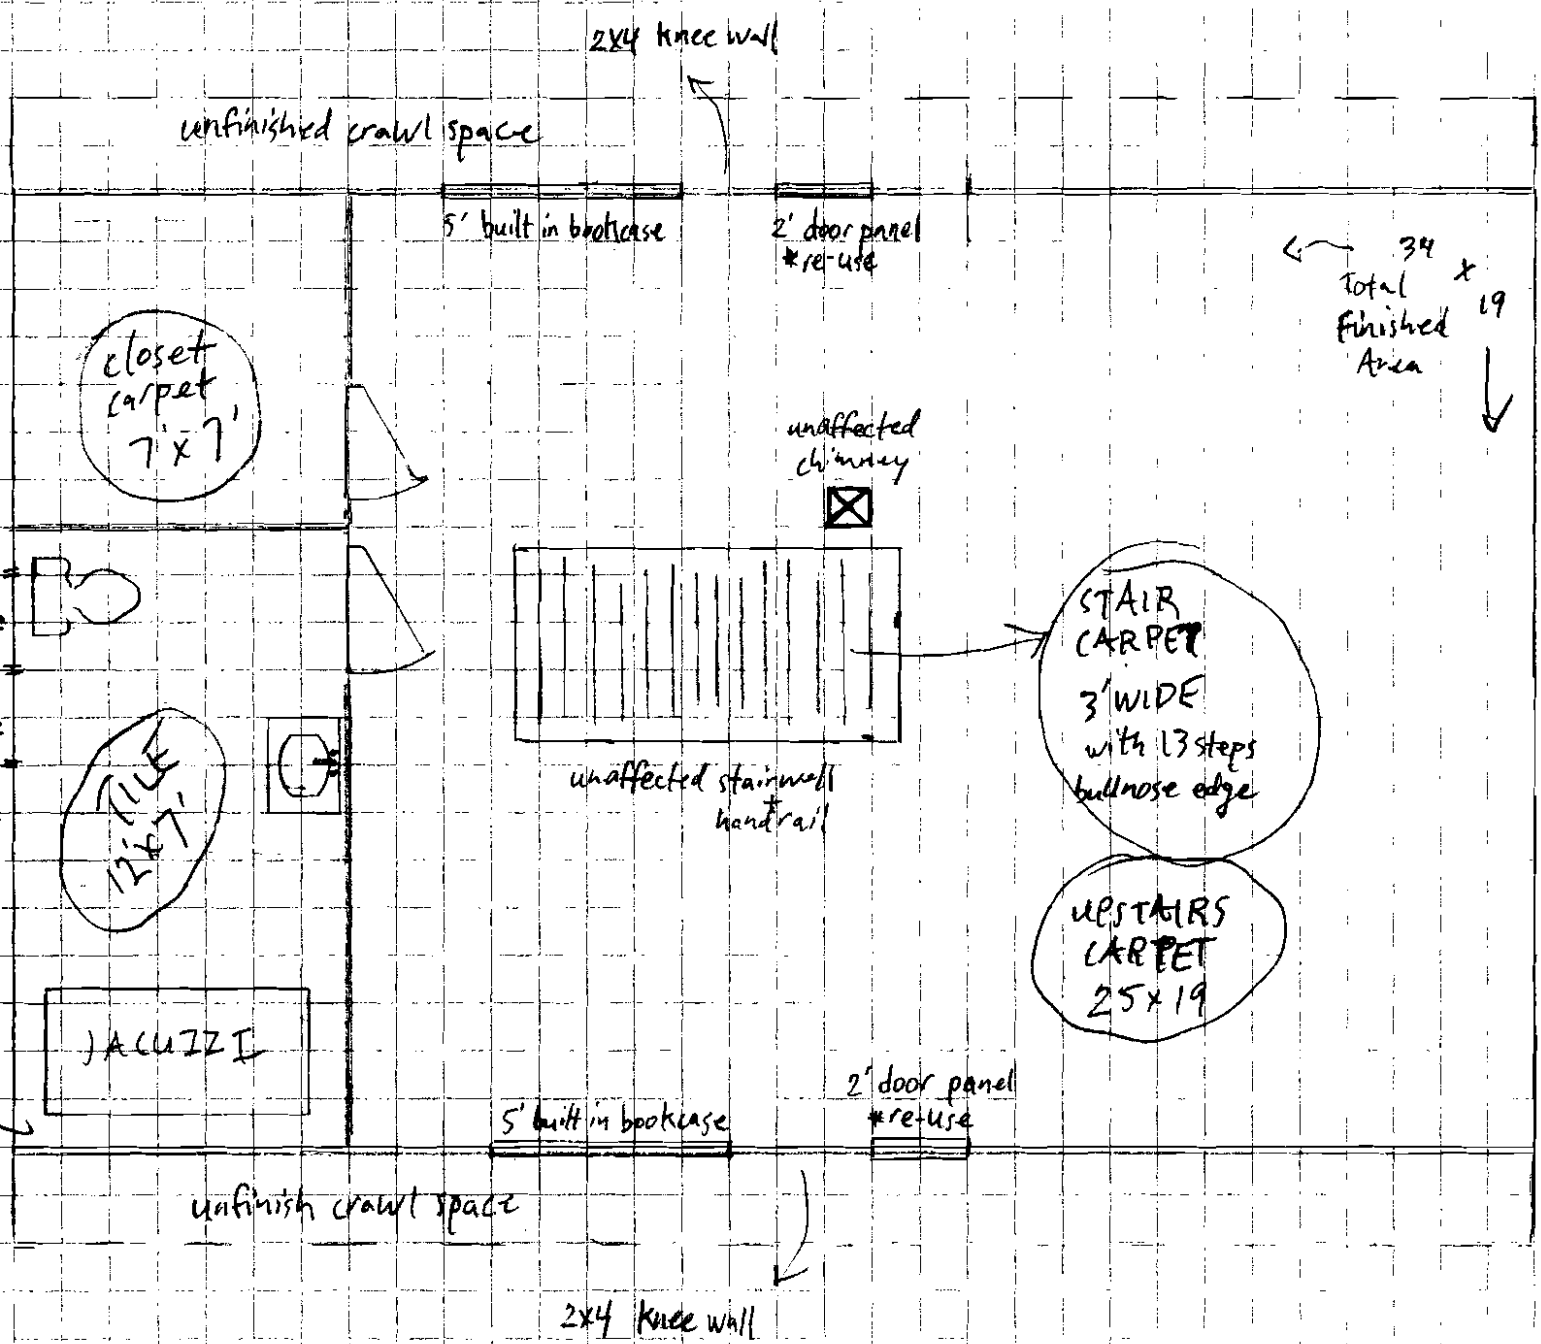 2x4 knee wall
unfinished crawl space
5' built in bookcase
2' door panel
*re-use
34 x 19
Total
Finished
Area
closet
carpet
7' x 7'
unaffected
chimney
STAIR
CARPET
3' WIDE
with 13 steps
bullnose edge
TILE
12' x 7'
unaffected stairwell
+
handrail
UPSTAIRS
CARPET
25 x 19
JACUZZI
2' door panel
*re-use
5' built in bookcase
unfinish crawl space
2x4 knee wall